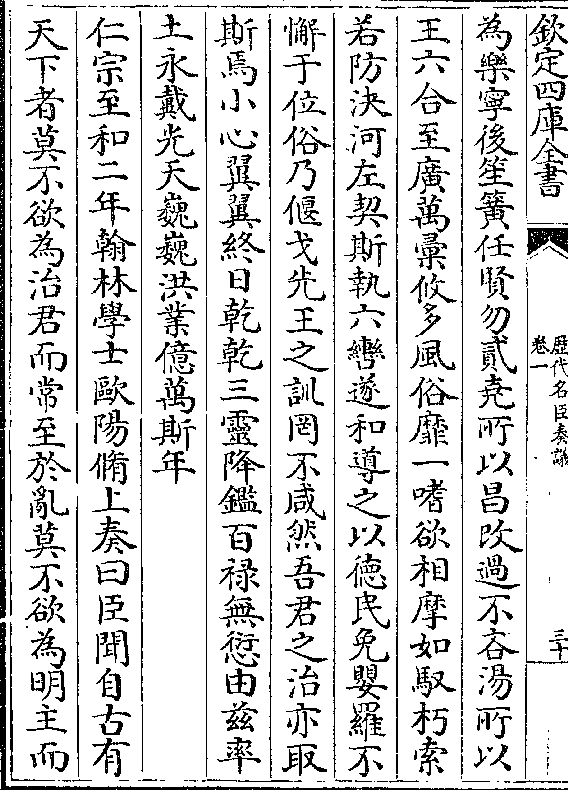 欽定四庫全書
歴代名臣奏議
卷一
三十
為樂寧後笙簧任賢勿貳堯所以昌改過不吝湯所以
王六合至廣萬彚攸多風俗靡一嗜欲相摩如馭朽索
若防決河左契斯執六轡遂和導之以德民免嬰羅不
懈于位俗乃偃戈先王之訓罔不咸然吾君之治亦取
斯焉小心翼翼終日乾乾三靈降鑑百禄無愆由兹率
土永戴光天巍巍洪業億萬斯年
仁宗至和二年翰林學士歐陽脩上奏曰臣聞自古有
天下者莫不欲為治君而常至於亂莫不欲為明主而